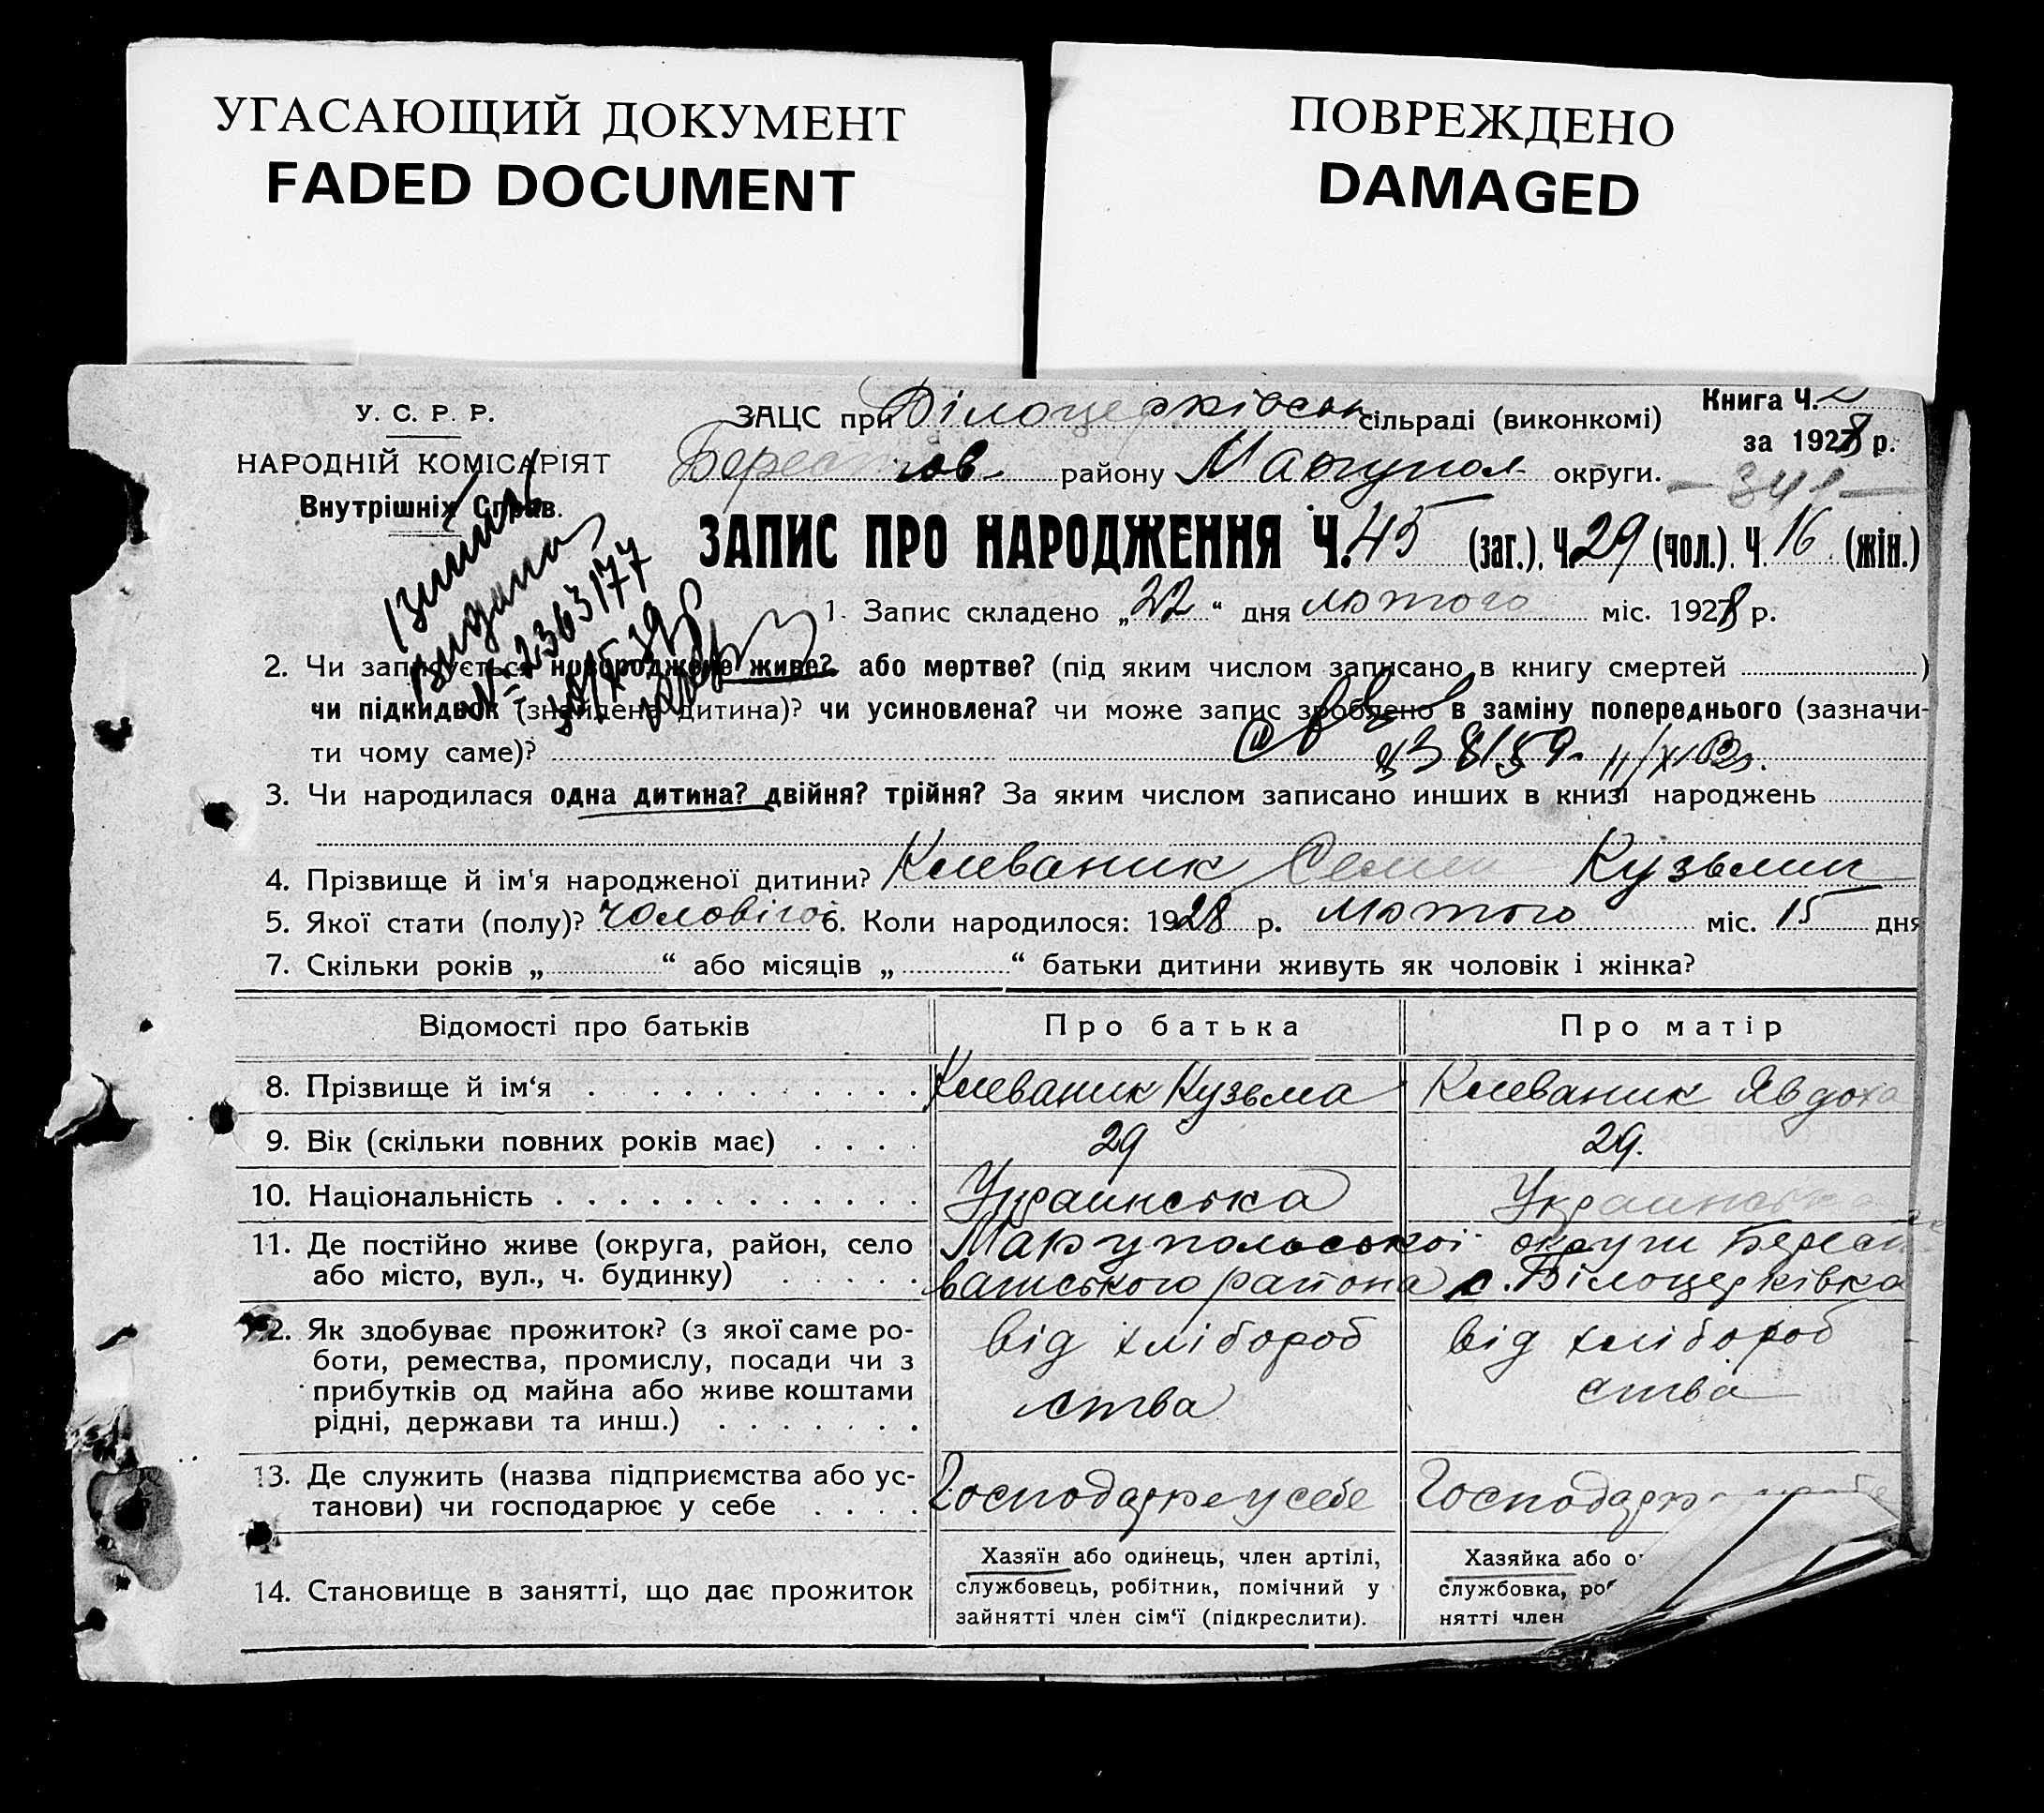 УГАСАЮЩИЙ ДОКУМЕНТ
FADED DOCUMENT
ПОВРЕЖДЕНО
DAMAGED
У. С. Р. Р.
НАРОДНІЙ КОМІСАРІЯТ
Внутрішніх Справ.
ЗАЦС при Білоцерківськ сільраді (виконкомі)
Книга Ч. 2
за 1928 р.
Берестов району Марупол округи.
— 341 —
ЗАПИС ПРО НАРОДЖЕННЯ Ч. 45 (заг.). Ч. 29 (чол.). Ч. 16 (жін.)
1. Запис складено „22“ дня лютого міс. 1928 р.
видана
№ 2363177
2. Чи записується новороджене живе? або мертве? (під яким числом записано в книгу смертей )
чи підкидьок (знайдена дитина)? чи усиновлена? чи може запис зроблено в заміну попереднього (зазначи-
ти чому саме)?
3. Чи народилася одна дитина? двійня? трійня? За яким числом записано инших в книзі народжень
4. Прізвище й ім'я народженої дитини? Клеваник Семен Кузьмич
5. Якої стати (полу)? чоловічої 6. Коли народилося: 1928 р. лютого міс. 15 дня
7. Скільки років „ “ або місяців „ “ батьки дитини живуть як чоловік і жінка?
Відомості про батьків Про батька Про матір
8. Прізвище й ім'я Клеваник Кузьма Клеваник Явдоха
9. Вік (скільки повних років має) 29 29.
10. Національність Украинська Украинська
11. Де постійно живе (округа, район, село Марупольської округи Берест
або місто, вул., ч. будинку) ватського района с. Білоцерківка
12. Як здобуває прожиток? (з якої саме ро- від хлібороб від хлібороб
боти, ремества, промислу, посади чи з
прибутків од майна або живе коштами ства ства
рідні, держави та инш.)
13. Де служить (назва підприємства або ус-
танови) чи господарює у себе Господарює у себе
14. Становище в занятті, що дає прожиток
Хазяїн або одинець, член артілі,
службовець, робітник, помічний у
зайнятті член сім'ї (підкреслити).
Хазяйка або
службовка,
нятті член